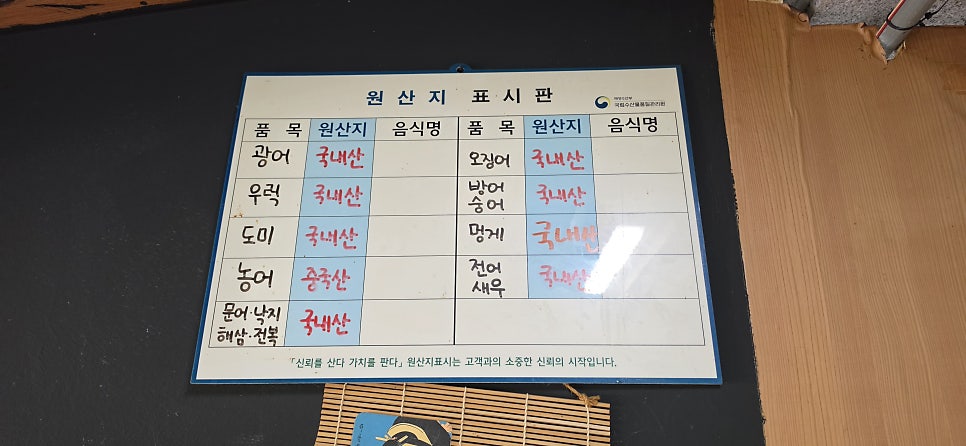 원산지 표시판
해양수산부
국립수산물품질관리원
품 목 원산지 음식명 품 목 원산지 음식명
광어 국내산 오징어 국내산
우럭 국내산 방어 숭어 국내산
도미 국내산 멍게 국내산
농어 중국산 전어 새우 국내산
문어·낙지 해삼·전복 국내산
「신뢰를 산다 가치를 판다」 원산지표시는 고객과의 소중한 신뢰의 시작입니다.